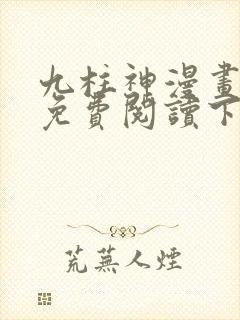 九柱神漫畫
免費閱讀下
荒蕪人煙